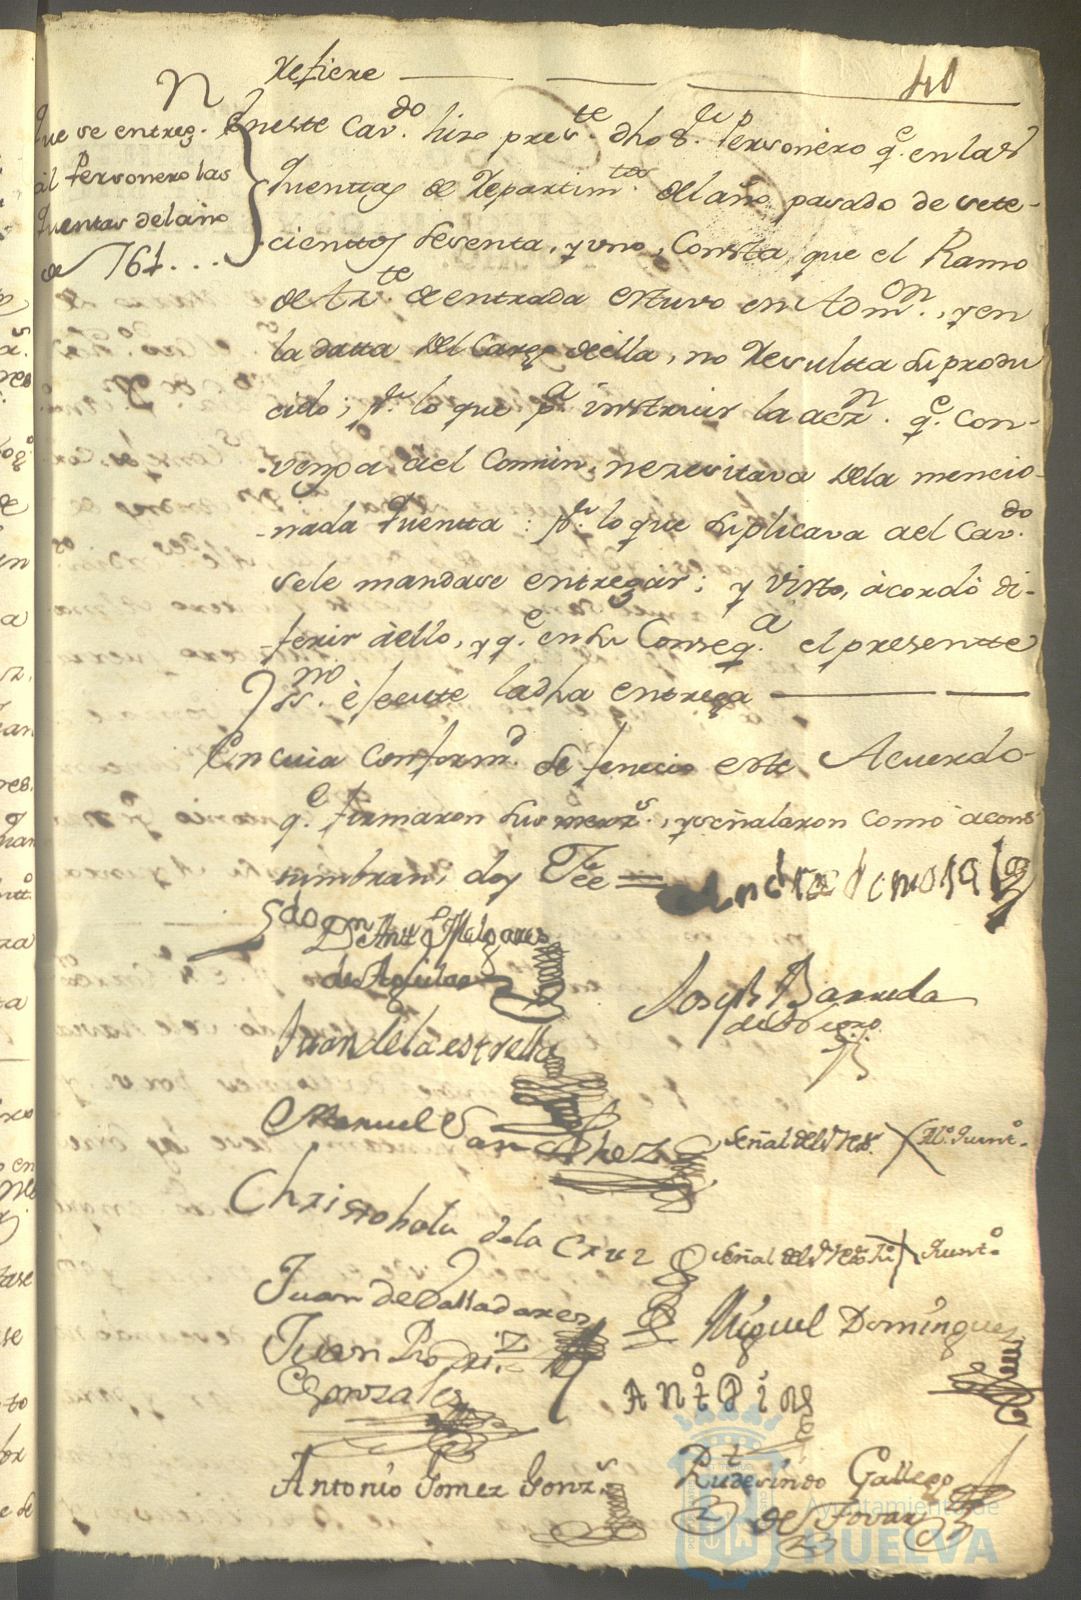 40
refiere
N
Que se entreg.
al Personero las
quentas del año
de 761...
En este Cav.do hizo pres.te dho S.r Personero q.e en las
quenttas de Repartim.tos del año pasado de sete-
cienttos sesenta, y uno, Consta, que el Ramo
de de entrada estuvo en Adm.on, y en
la datta del Cargo de ella, no resultta su produ
cido; p.r lo que p.a instruir la acz.n q.e con-
venga àel Comun, nezesitava dela mencio-
nada quentta: p.r lo que suplicava àel Cav.do
sele mandase entregar; y visto, àcordò di-
ferir àello, y q.e en su Conseq.a el presentte
ss.no èjecute ladha entrega
En cuia conform.d se fenecio este Acuerdo
q.e firmaron sus merz.s, y señalaron como àcos
tumbran, doy Fee =
Andres de mora
D.n Antt.o Melgarejo
de Aguilar
Joseph Barreda
Juan dela estrella
Manuel Sanchez
Señal del S.r
Christobal dela Cruz
Señal del S.r
Juan de Valladares
Miguel Dominguez
Juan Rodri.z
Gonzales
Ant.o Pin
Antonio Gomez Gonz.s
Rudesindo Gallego
de Tovar
Ayuntamiento de
HUELVA